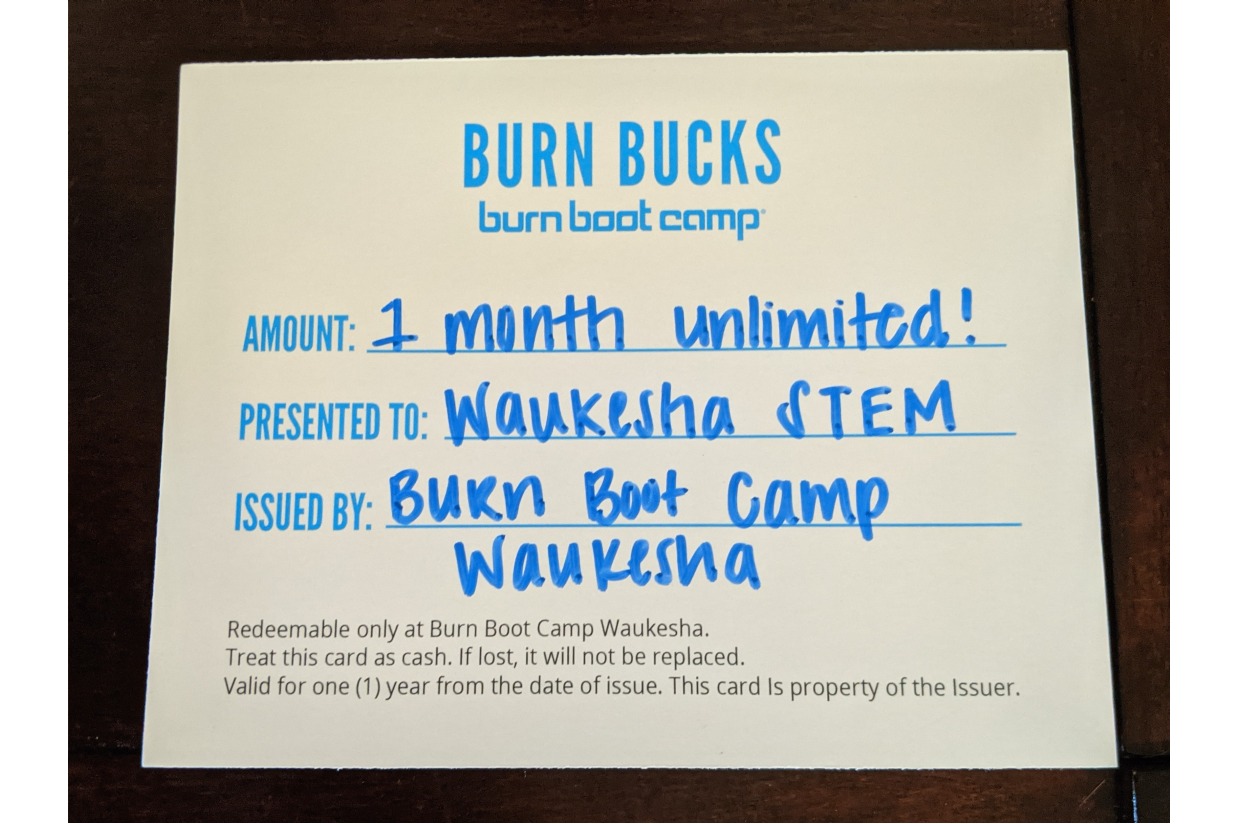 BURN BUCKS
burn boot camp
AMOUNT: 1 month unlimited!
PRESENTED TO: Waukesha STEM
ISSUED BY: Burn Boot Camp
Waukesha
Redeemable only at Burn Boot Camp Waukesha.
Treat this card as cash. If lost, it will not be replaced.
Valid for one (1) year from the date of issue. This card Is property of the Issuer.